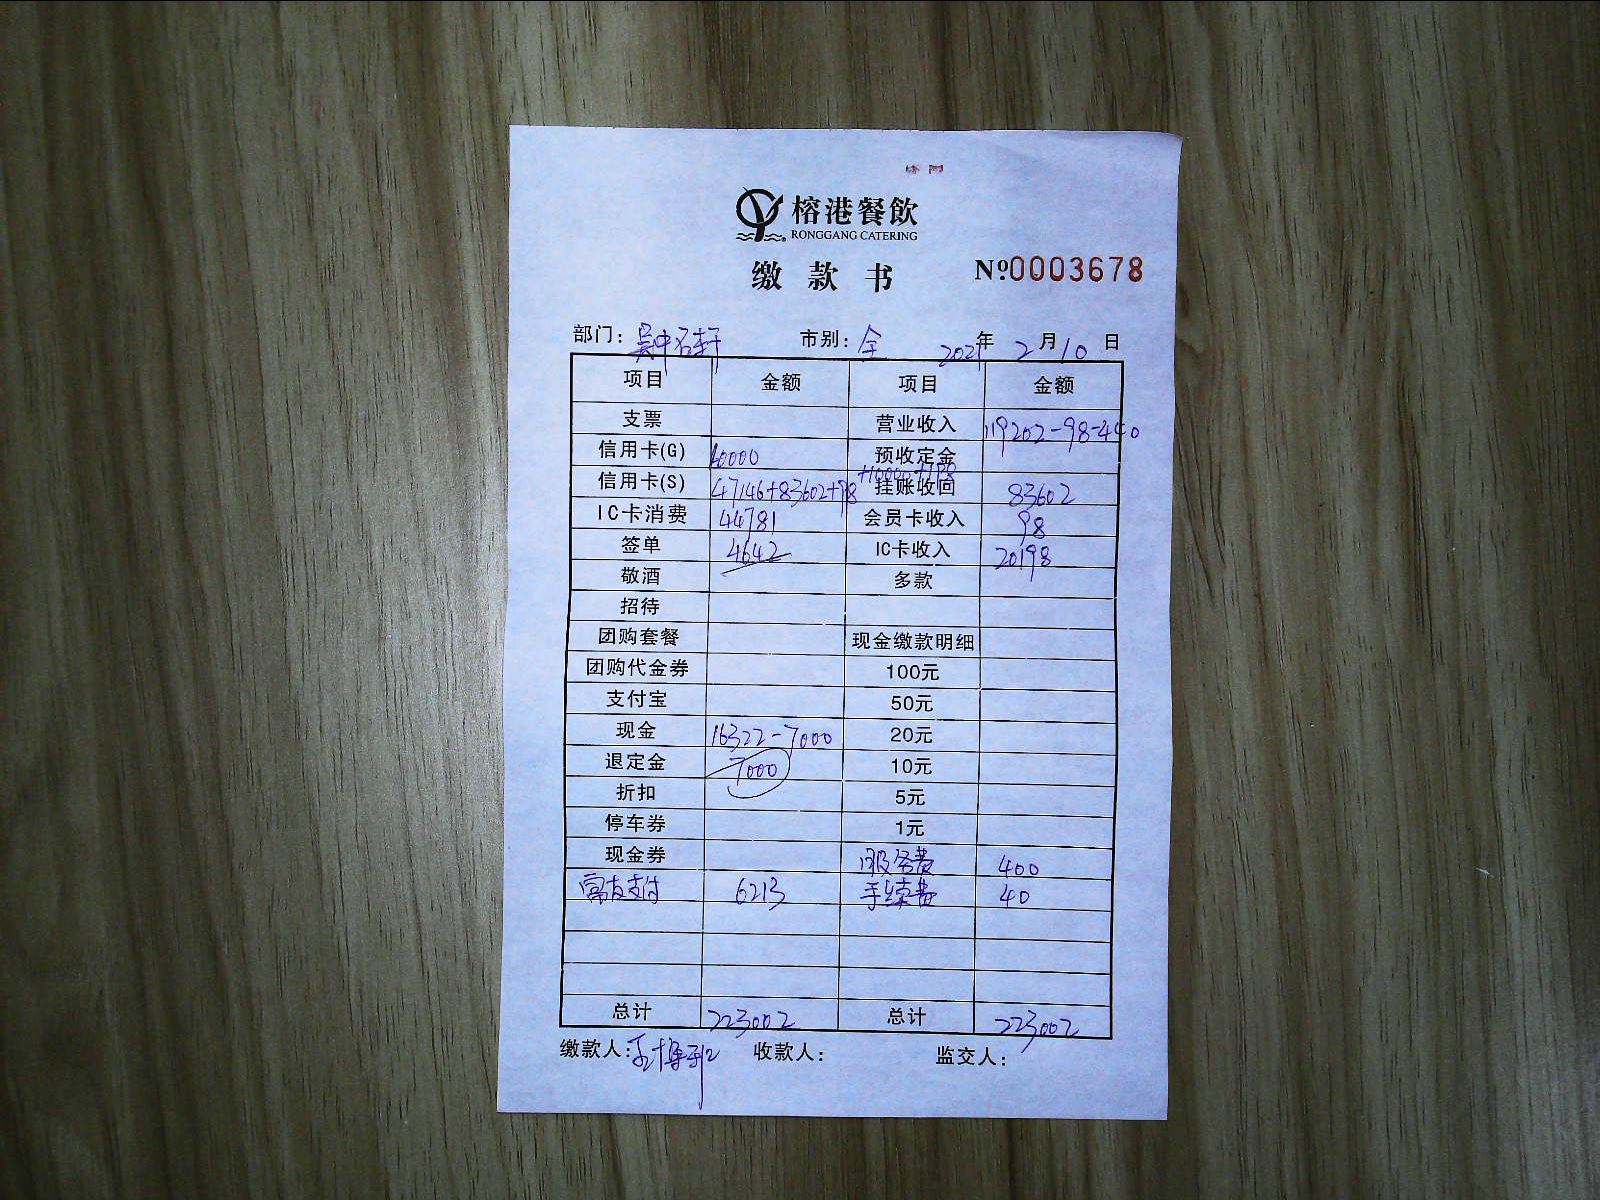 榕港餐飲
RONGGANG CATERING
缴款书 №0003678
部门：吴中名轩 市别：全 2021年2月10日
项目 金额 项目 金额
支票 营业收入 119202-98-440
信用卡(G) 10000 预收定金
信用卡(S) 47146+83602+98+10000+198 挂账收回 83602
IC卡消费 44781 会员卡收入 98
签单 4642 IC卡收入 20198
敬酒 多款
招待
团购套餐 现金缴款明细
团购代金券 100元
支付宝 50元
现金 16322-7000 20元
退定金 7000 10元
折扣 5元
停车券 1元
现金券 服务费 400
富友支付 6213 手续费 40
总计 223002 总计 223002
缴款人： 收款人： 监交人：